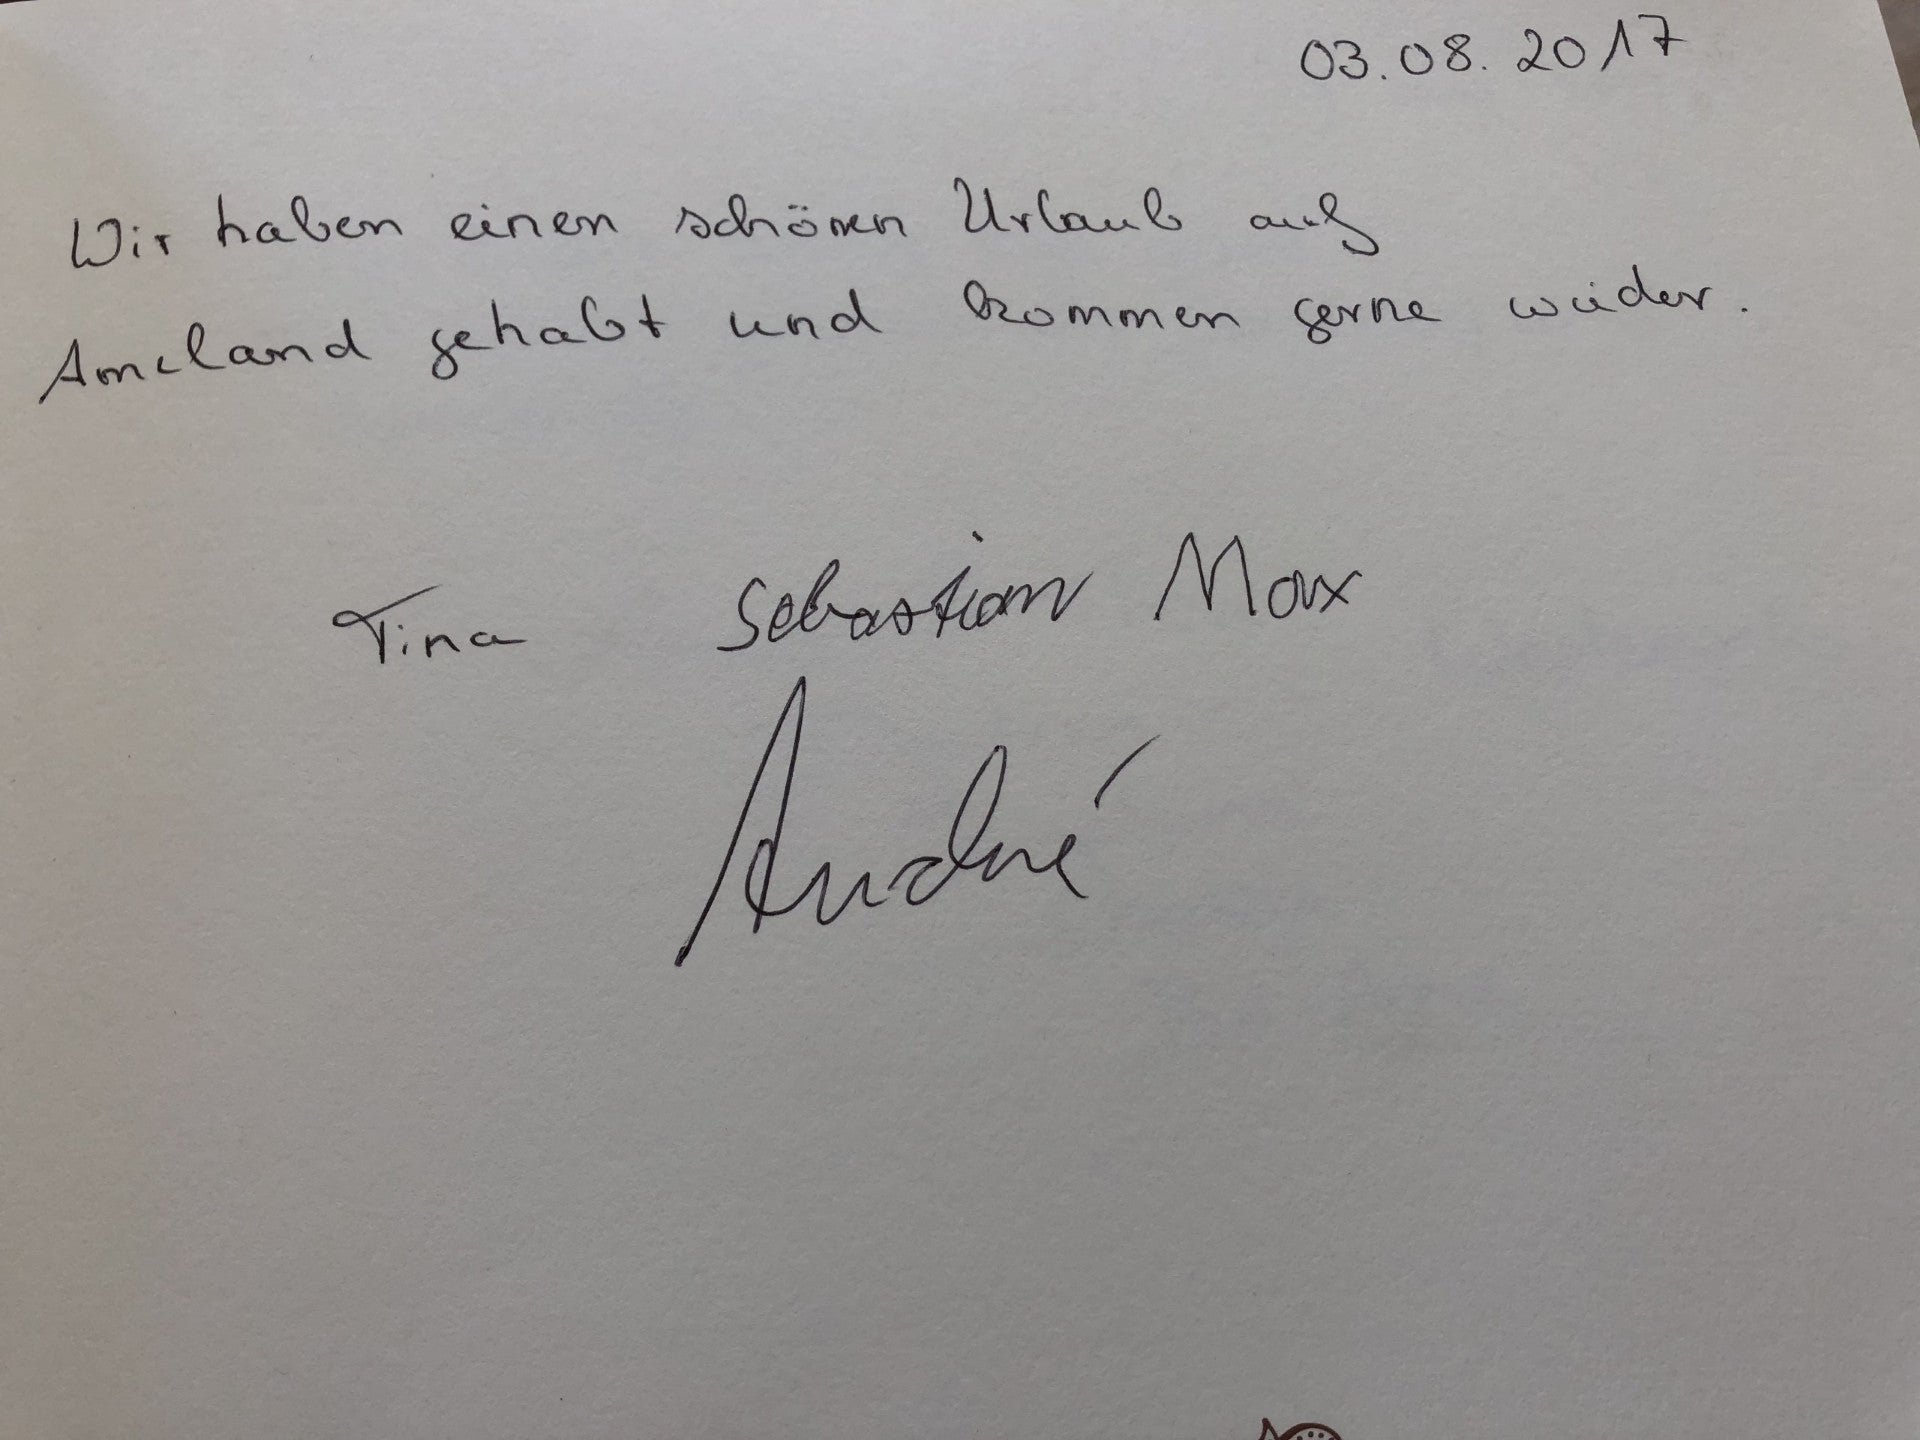 03.08.2017
Wir haben einen schönen Urlaub auf
Ameland gehabt und kommen gerne wieder.
Tina Sebastian Max
André